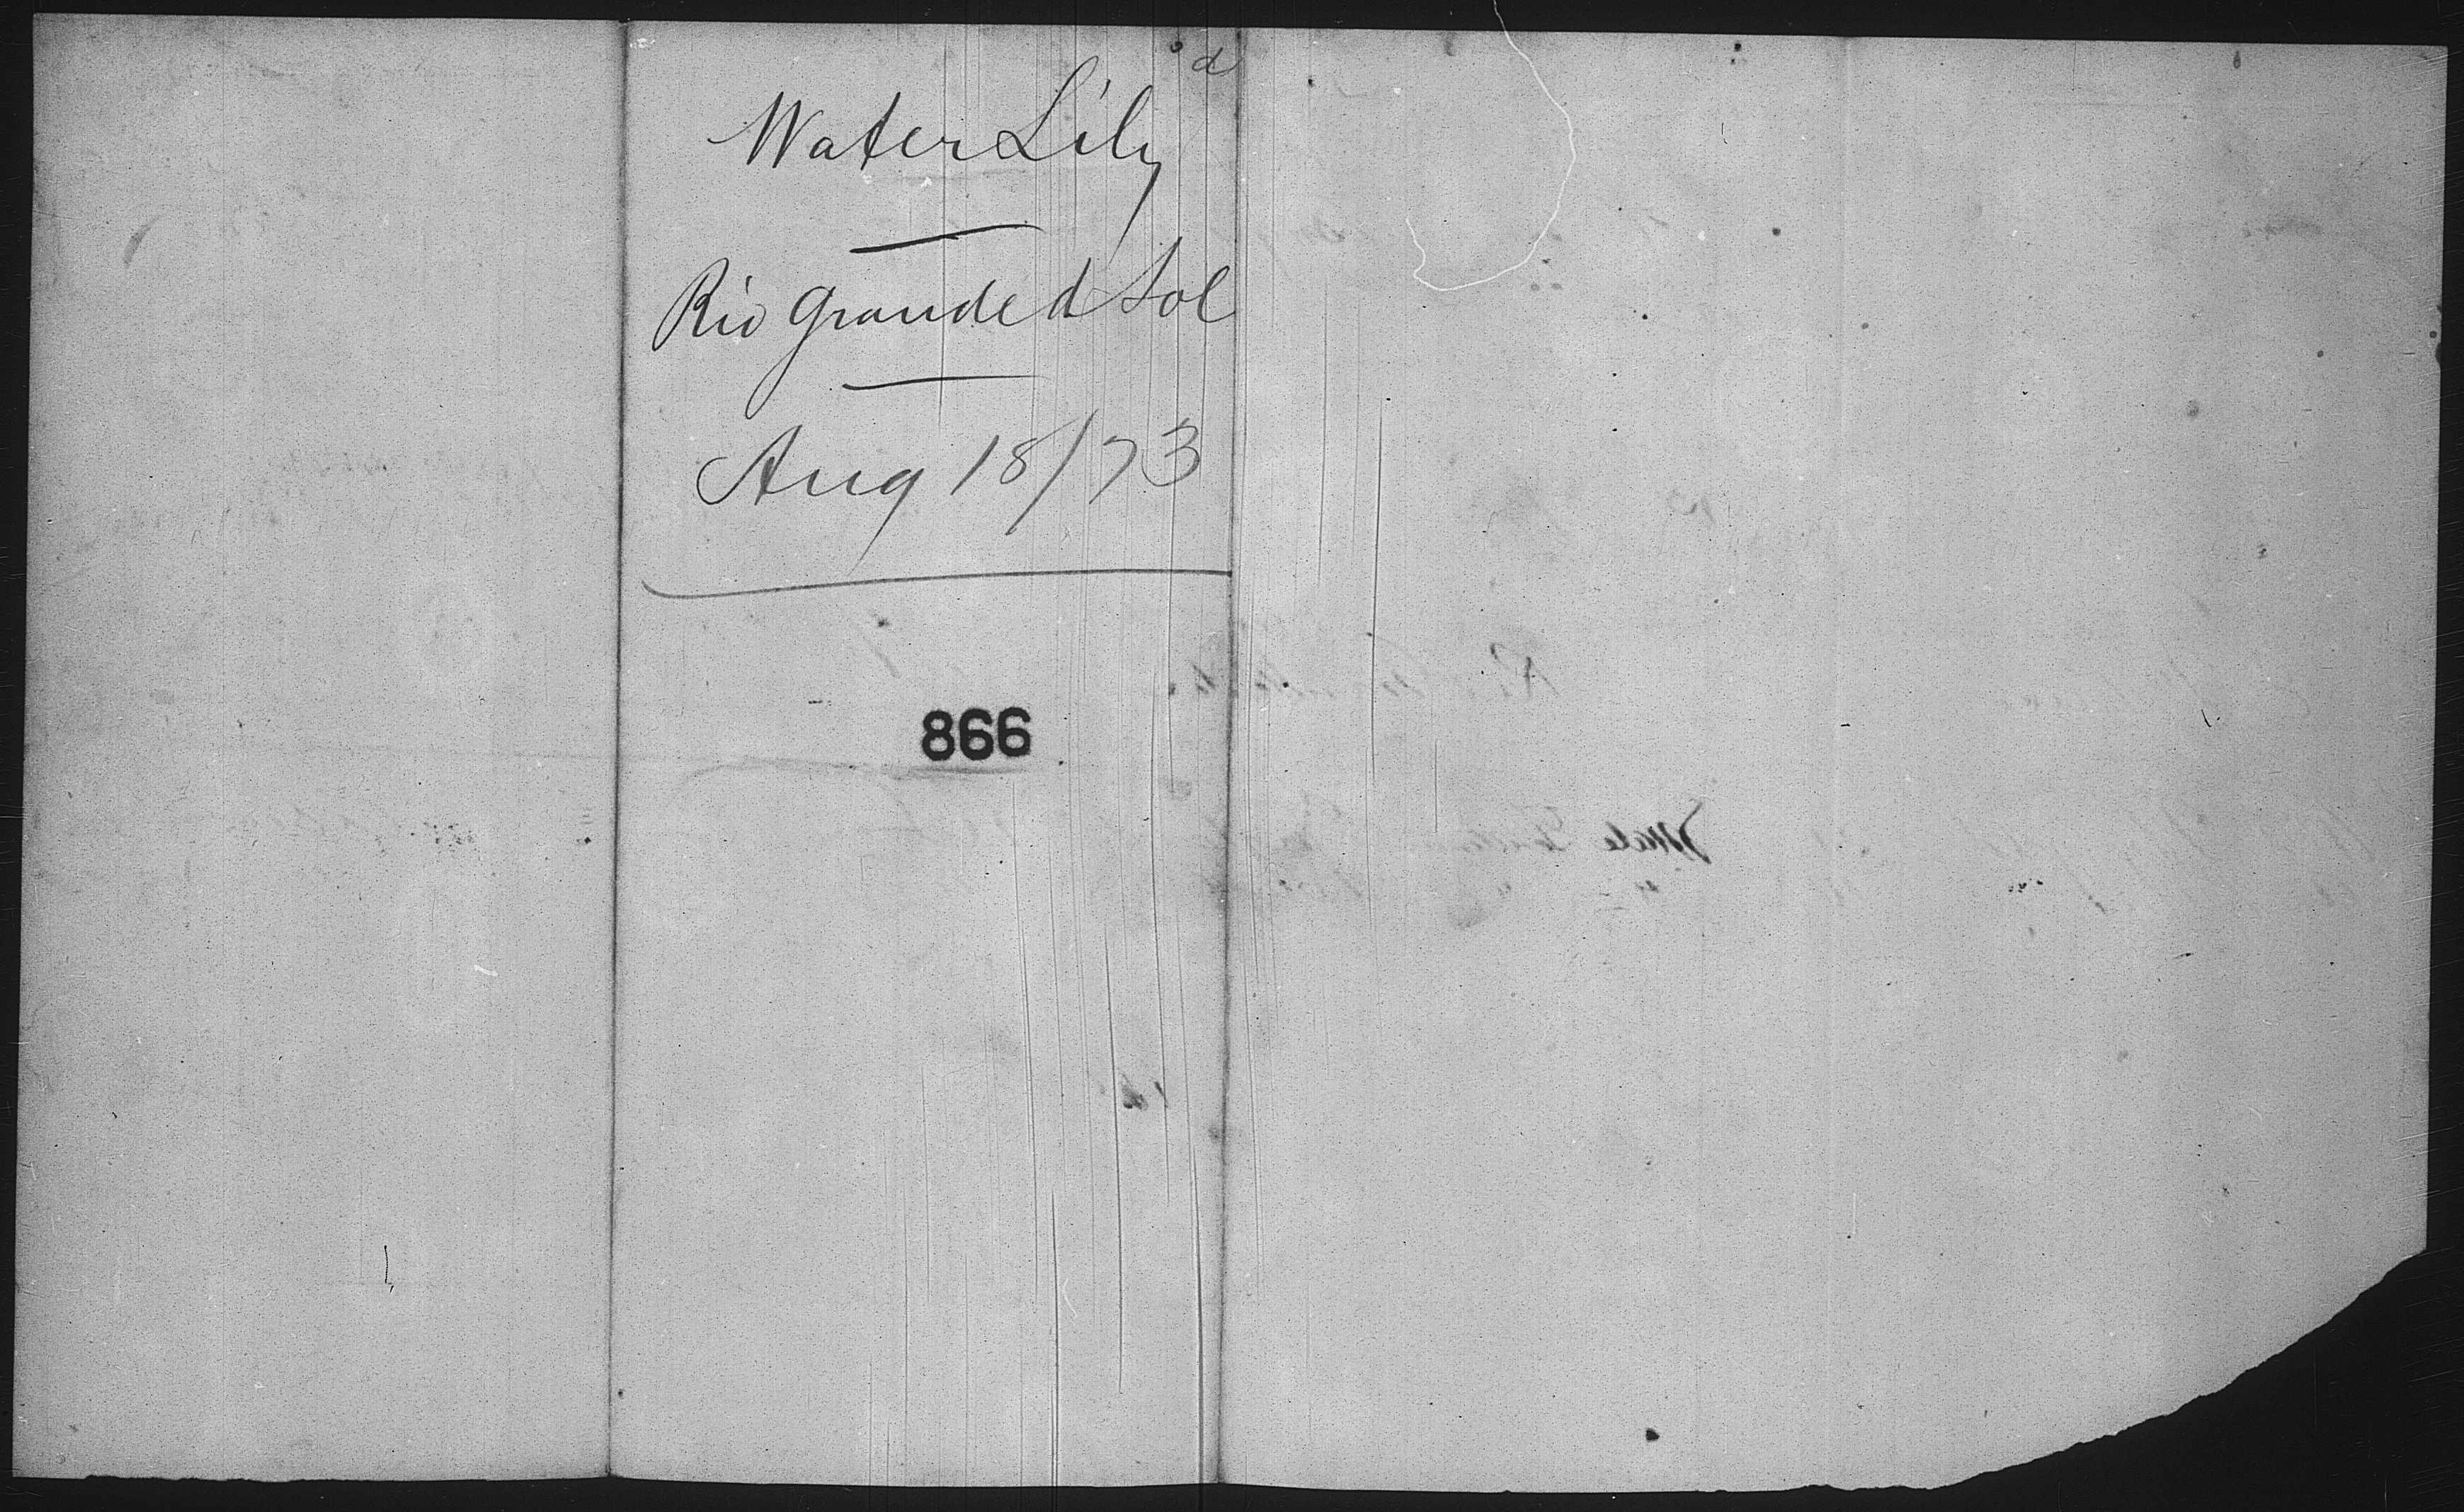 d
Water Lily
Rio Grande d Sol
Aug 18/73
866